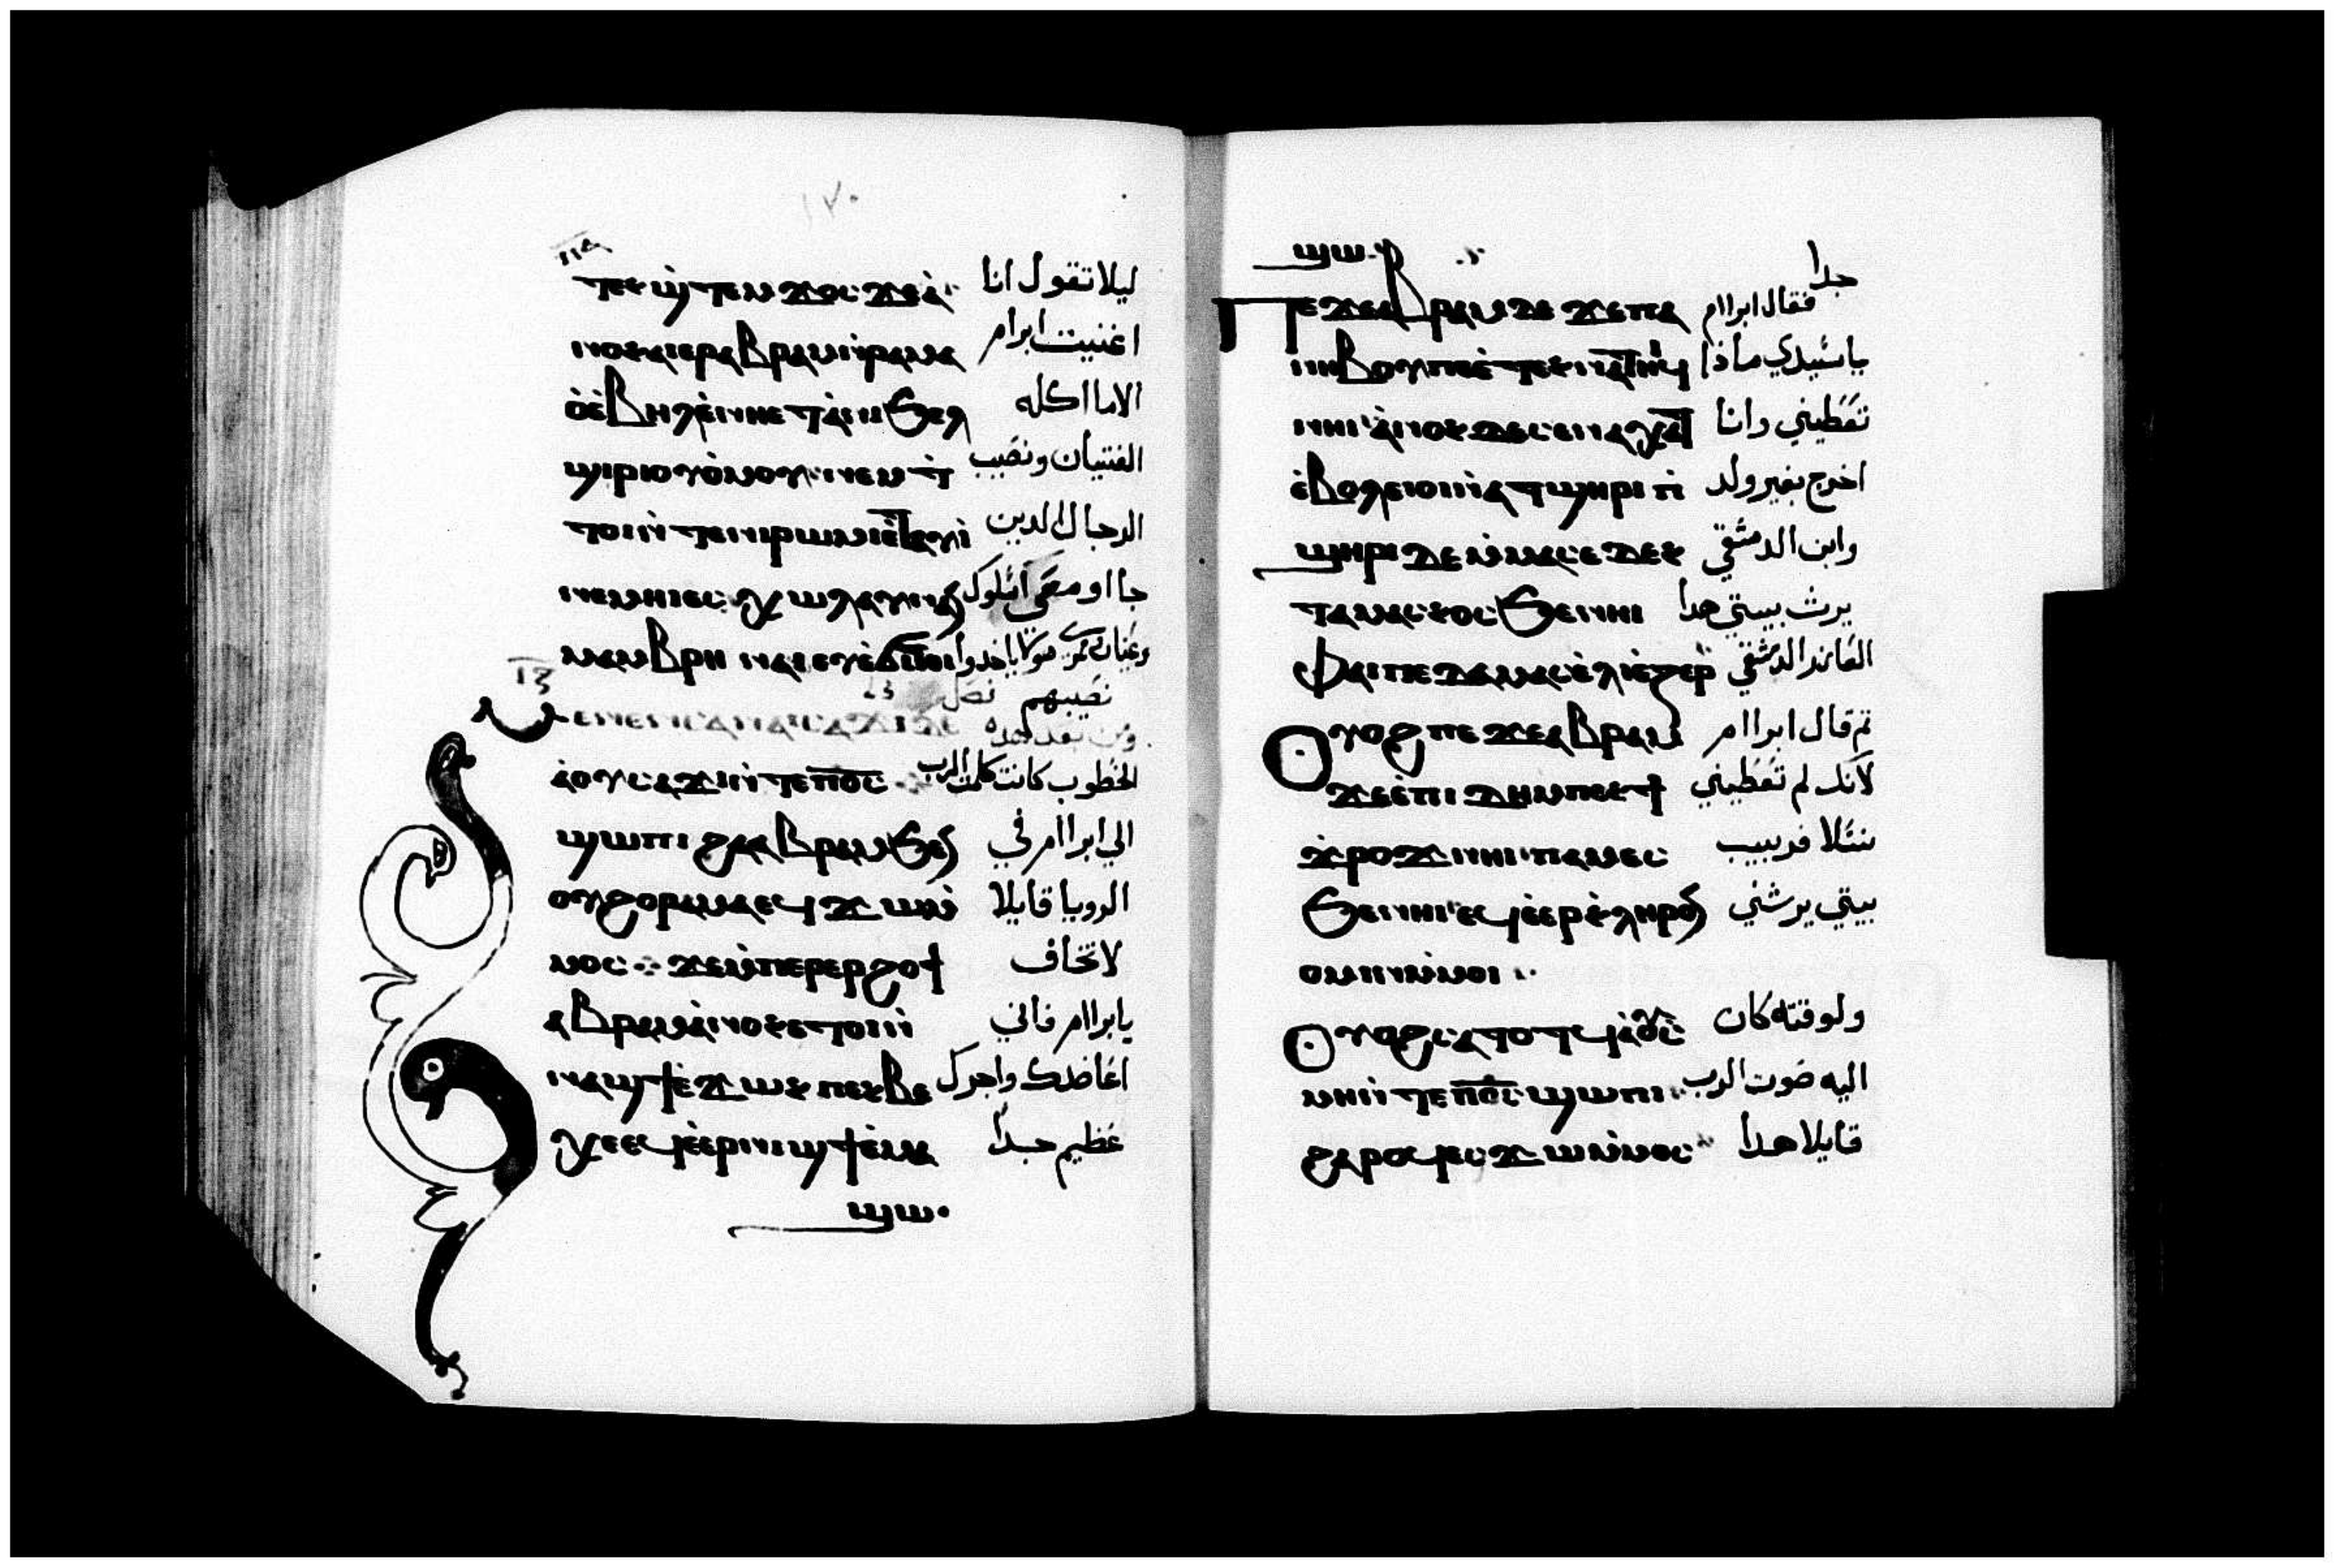 ١٢٠
ⲧⲉⲕϣⲧⲉⲙϫⲟⲥ ϫⲉⲁ̀ ليلا تقول انا
ⲛⲟⲕⲁⲓⲉⲣⲁⲃⲣⲁⲙⲛ̀ⲣⲁⲙⲁ اغنيت ابرام
ⲟ̀ⲉ̀ⲃⲏⲗⲉ̀ⲛⲏⲉⲧⲁⲛⲓϧⲉⲗ الاما اكله
ϣⲓⲣⲓⲟⲩⲟⲙⲟⲩ ⲛⲉⲙ ⲧ̀ الفتيان ونصيب
ⲧⲟⲓⲛ̀ⲧⲉⲛⲓⲣⲱⲙⲓⲉ̀ⲧⲁⲩⲓ̀ الرجال الدين
ⲛⲉⲙⲏⲓ جااو معي اشلوك
ⲙⲁⲙⲃⲣⲏ ⲛⲁⲓ ياخدوا
نصيبهم فصل
ⲙⲉⲛⲉⲛⲥⲁⲛⲁⲓⲥⲁϫⲓⲇⲉ ومن بعد هده
ⲁⲟⲩⲥⲁϫⲓⲛ̀ⲧⲉⲡⲟ̅ⲥ̅ الخطوب كانت كلمت الرب
ϣⲱⲡⲓ ϩⲁⲁⲃⲣⲁⲙϧⲉⲛ الي ابراام في
ⲟⲩϩⲟⲣⲁⲙⲁⲉϥϫⲱⲙ̀ الرويا قايلا
ⲙⲟⲥ ϫⲉⲙ̀ⲡⲉⲣⲉⲣϩⲟϯ لاتخاف
ⲁⲃⲣⲁⲙⲁ̀ⲛⲟⲕⲉⲧⲟⲓⲛ̀ يابراام فاني
ⲛⲁϣϯⲉ̀ϫⲱⲕ ⲡⲉⲕⲃⲉ اعاضدك واجرك
ⲭⲉⲉϥⲉ̀ⲉⲣⲛⲓϣϯⲉ̀ⲙⲁ عظيم جدا
ϣⲱ·
ϣⲱ· جدا
ⲡⲉϫⲉⲁⲃⲣⲁⲙⲇⲉ ϫⲉⲡⲁ فقال ابراام
ⲛⲏⲃⲟⲩⲡⲉⲉ̀ⲧⲉⲕⲛⲁⲧⲏⲓϥ ياسيدي ماذا
ⲛⲏⲓ ⲁ̀ⲛⲟⲕⲇⲉⲥⲉⲛⲁⲭⲁⲧ تعطيني وانا
ⲉ̀ⲃⲟⲗⲉⲓⲟⲓⲛ̀ⲁⲧϣⲏⲣⲓ ⲡ̀ اخرج بغير ولد
ϣⲏⲣⲓ ⲇⲉ ⲙ̀ⲙⲁⲥⲉⲇⲉⲕ وابن الدمشقي
ⲧⲁⲙⲁⲥⲕⲟⲥϧⲉⲛⲏⲓ يرث بيتي هدا
ⲫⲁⲓⲡⲉⲇⲁⲙⲁⲥⲉ̀ⲗⲓⲉ̀ⲍⲉⲣ العازر الدمشقي
ⲟⲩⲟϩ ⲡⲉϫⲉⲁⲃⲣⲁⲙ تم قال ابراام
ϫⲉⲉ̀ⲡⲓⲇⲏⲙⲡⲉⲕϯ لانك لم تعطيني
ϫ̀ⲣⲟϫ ⲛⲏⲓ ⲡⲁⲙⲉⲥ نسلا فربيب
ϧⲉⲛⲏⲓ ⲉϥⲉ̀ⲉⲣⲕ̀ⲗⲏⲣⲟⲛ بيتي يرثني
ⲟⲙⲓⲛⲙ̀ⲙⲟⲓ
ⲟⲩⲟϩⲥⲁⲧⲟⲧϥⲁ̀ⲟⲩⲥ ولوقته كان
ⲙⲏⲛ̀ⲧⲉⲡⲟ̅ⲥ̅ϣⲱⲡⲓ اليه صوت الرب
ϩⲁⲣⲟϥⲉⲥϫⲱⲙ̀ⲙⲟⲥ قايلا هدا